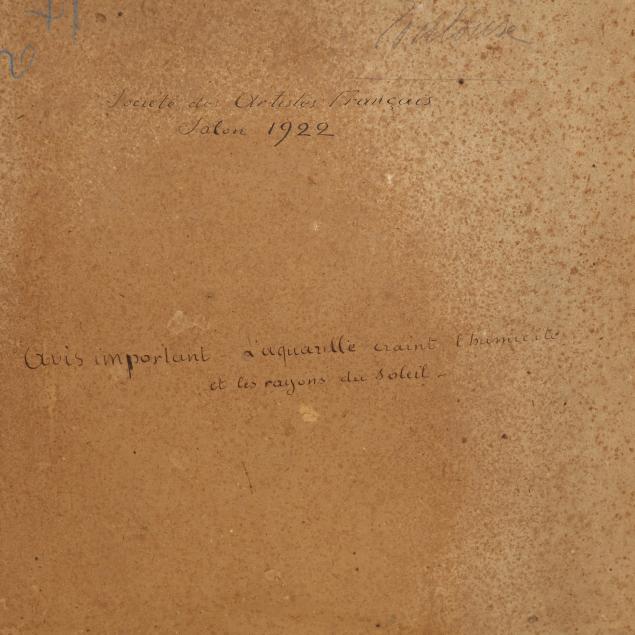 Toulouse
Société des Artistes Français
Salon 1922
Avis important L'aquarelle craint l'humidité
et les rayons du Soleil -